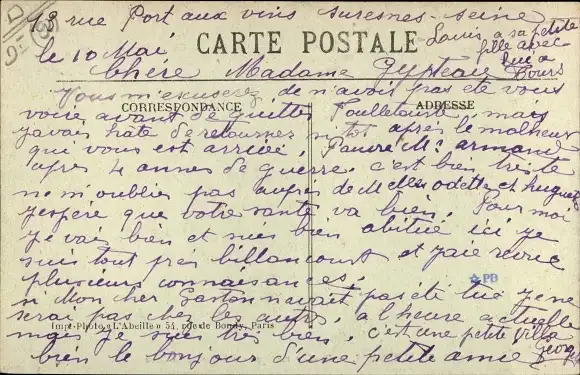 13 rue Port aux vins Suresnes - Seine
le 10 Mai
Louis a sa petite
fille avec
lui a
Tours
CARTE POSTALE
Chère Madame
Vous m'excuserez de n'avoir pas été vous
CORRESPONDANCE
ADRESSE
voire avant de quitter mais
j'avais hâte de retourner après le malheur
qui vous est arrivé, Pauvre Mr armand
après 4 années de guerre c'est bien triste
ne m'oubliez pas auprès de Melles odette et huguette
j'espère que votre santé va bien, Pour moi
je vais bien et suis bien abituée ici je
suis tout près billancourt et j'aie revue
plusieurs connaisances,
PB
si Mon cher Gaston n'avait pas été tué je ne
serai pas chez les autre, a l'heure actuelle
Impr-Photo « L'Abeille » 54, rue de Bondy, Paris
mais je suis très bien, c'est une petite Villa
bien le bonjour d'une petite amie